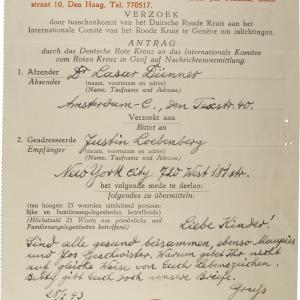 straat 10, Den Haag, Tel. 770517.
VERZOEK
door tusschenkomst van het Duitsche Roode Kruis aan het
Internationale Comité van het Roode Kruis te Genève om inlichtingen.
ANTRAG
durch das Deutsche Rote Kreuz an das Internationale Komitee
vom Roten Kreuz in Genf auf Nachrichtenvermittlung.
1. Afzender Dr Lasar Dünner
Absender (naam, voornaam en adres)
(Name, Taufname und Adresse)
Amsterdam-C., den Texstr. 40.
Verzoekt aan
Bittet an
2. Geadresseerde Justin Loebenberg
Empfänger (naam, voornaam en adres)
(Name, Taufname und Adresse)
New York City 720 West 181str.
het volgende mede te deelen:
folgendes zu übermitteln:
(ten hoogste 25 woorden uitsluitend persoon-
lijke en familieaangelegenheden betreffend)
(Höchstzahl 25 Worte nur persönliche und
Familienangelegenheiten betreffend)
Liebe Kinder!
Sind alle gesund beisammen, ebenso
Geschwister. Warum gibt Ihr nicht
auf gleiche Weise von Euch Lebenszeichen.
gibt Euch doch unsere Briefe.
43 Gruß